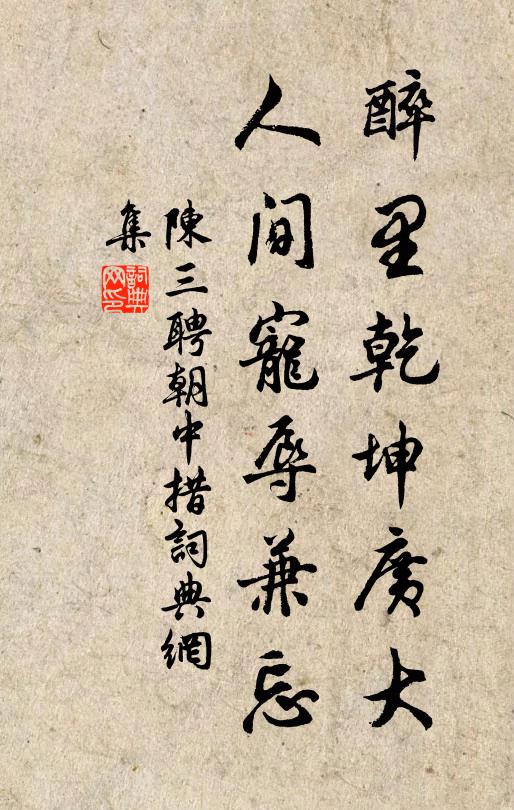 醉里乾坤廣大
人間寵辱兼忘
陳三聘朝中措詞典網
集
詞典网印